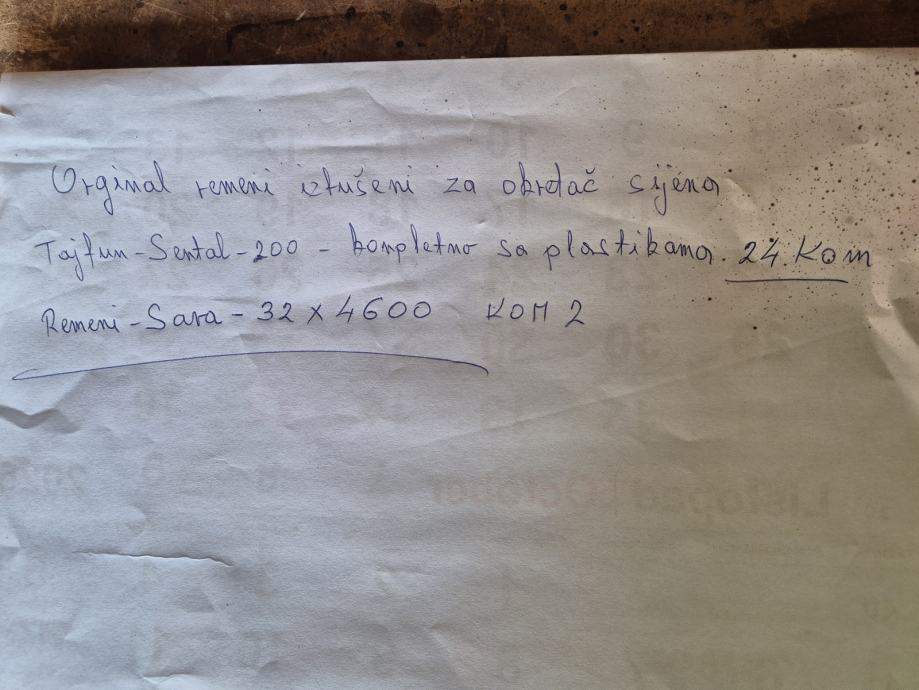 Orginal remeni iztušeni za okrdač sijena
Tajfun-Sental-200 - kompletno sa plastikama. 24. Kom
Remeni-Sara-32 x 4600 KOM 2
Listopad | October